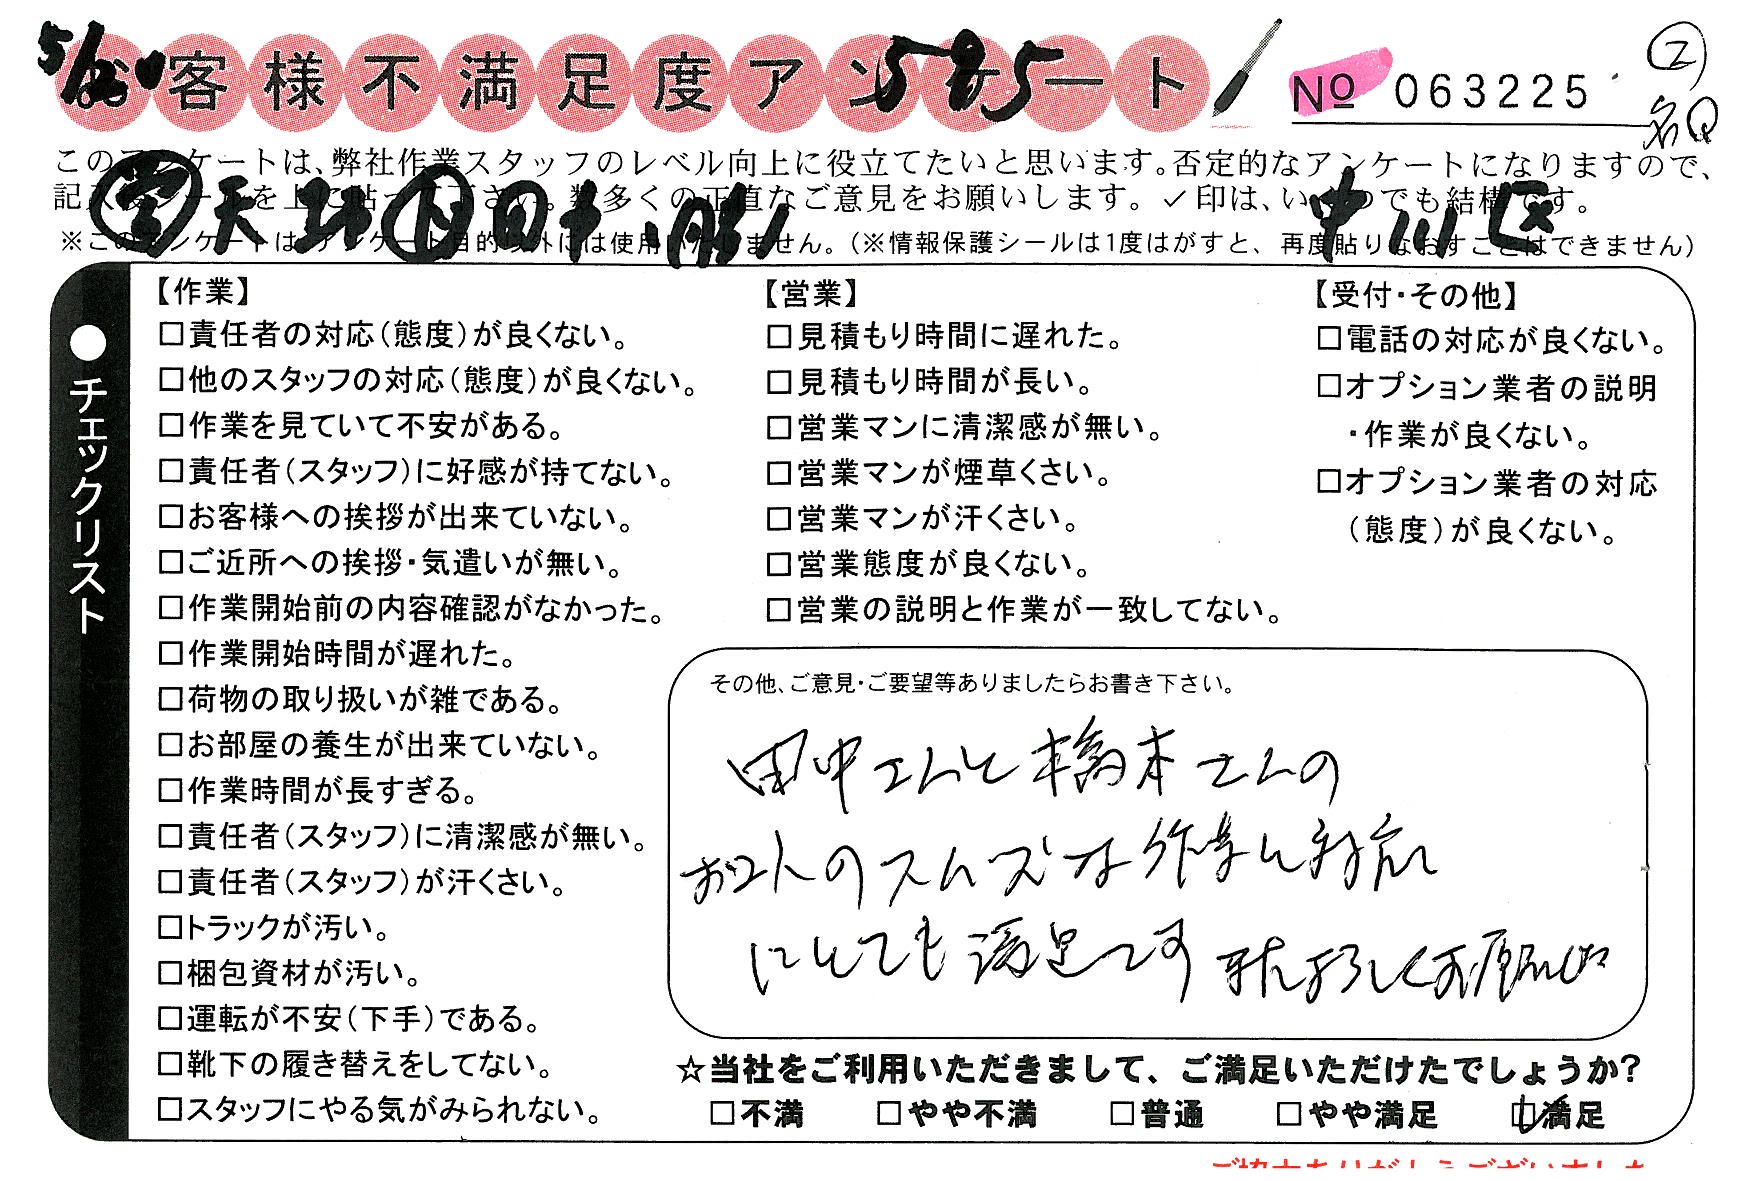 5/20
お客様不満足度アンケート
585
No 063225
②
名Q
このアンケートは、弊社作業スタッフのレベル向上に役立てたいと思います。否定的なアンケートになりますので、
記入後シールを上に貼って下さい。数多くの正直なご意見をお願いします。✓印は、いくつでも結構です。
中川区
※このアンケートは、アンケート目的以外には使用いたしません。（※情報保護シールは1度はがすと、再度貼りなおすことはできません）
●チェックリスト
【作業】
□責任者の対応（態度）が良くない。
□他のスタッフの対応（態度）が良くない。
□作業を見ていて不安がある。
□責任者（スタッフ）に好感が持てない。
□お客様への挨拶が出来ていない。
□ご近所への挨拶・気遣いが無い。
□作業開始前の内容確認がなかった。
□作業開始時間が遅れた。
□荷物の取り扱いが雑である。
□お部屋の養生が出来ていない。
□作業時間が長すぎる。
□責任者（スタッフ）に清潔感が無い。
□責任者（スタッフ）が汗くさい。
□トラックが汚い。
□梱包資材が汚い。
□運転が不安（下手）である。
□靴下の履き替えをしてない。
□スタッフにやる気がみられない。
【営業】
□見積もり時間に遅れた。
□見積もり時間が長い。
□営業マンに清潔感が無い。
□営業マンが煙草くさい。
□営業マンが汗くさい。
□営業態度が良くない。
□営業の説明と作業が一致してない。
【受付・その他】
□電話の対応が良くない。
□オプション業者の説明
・作業が良くない。
□オプション業者の対応
（態度）が良くない。
その他、ご意見・ご要望等ありましたらお書き下さい。
田中さんと橋本さんの
お2人のスムーズな作業と対応
にとても満足です またよろしくお願いします
☆当社をご利用いただきまして、ご満足いただけたでしょうか？
□不満 □やや不満 □普通 □やや満足 ☑満足
ご協力ありがとうございました